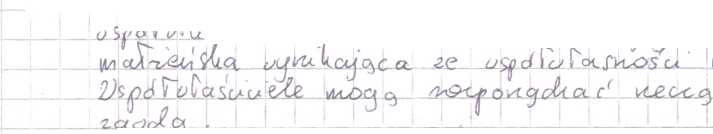 małżeńska wynikająca ze współwłasności
Współwłaściciele mogą rozporządzać rzeczą
zgodą.